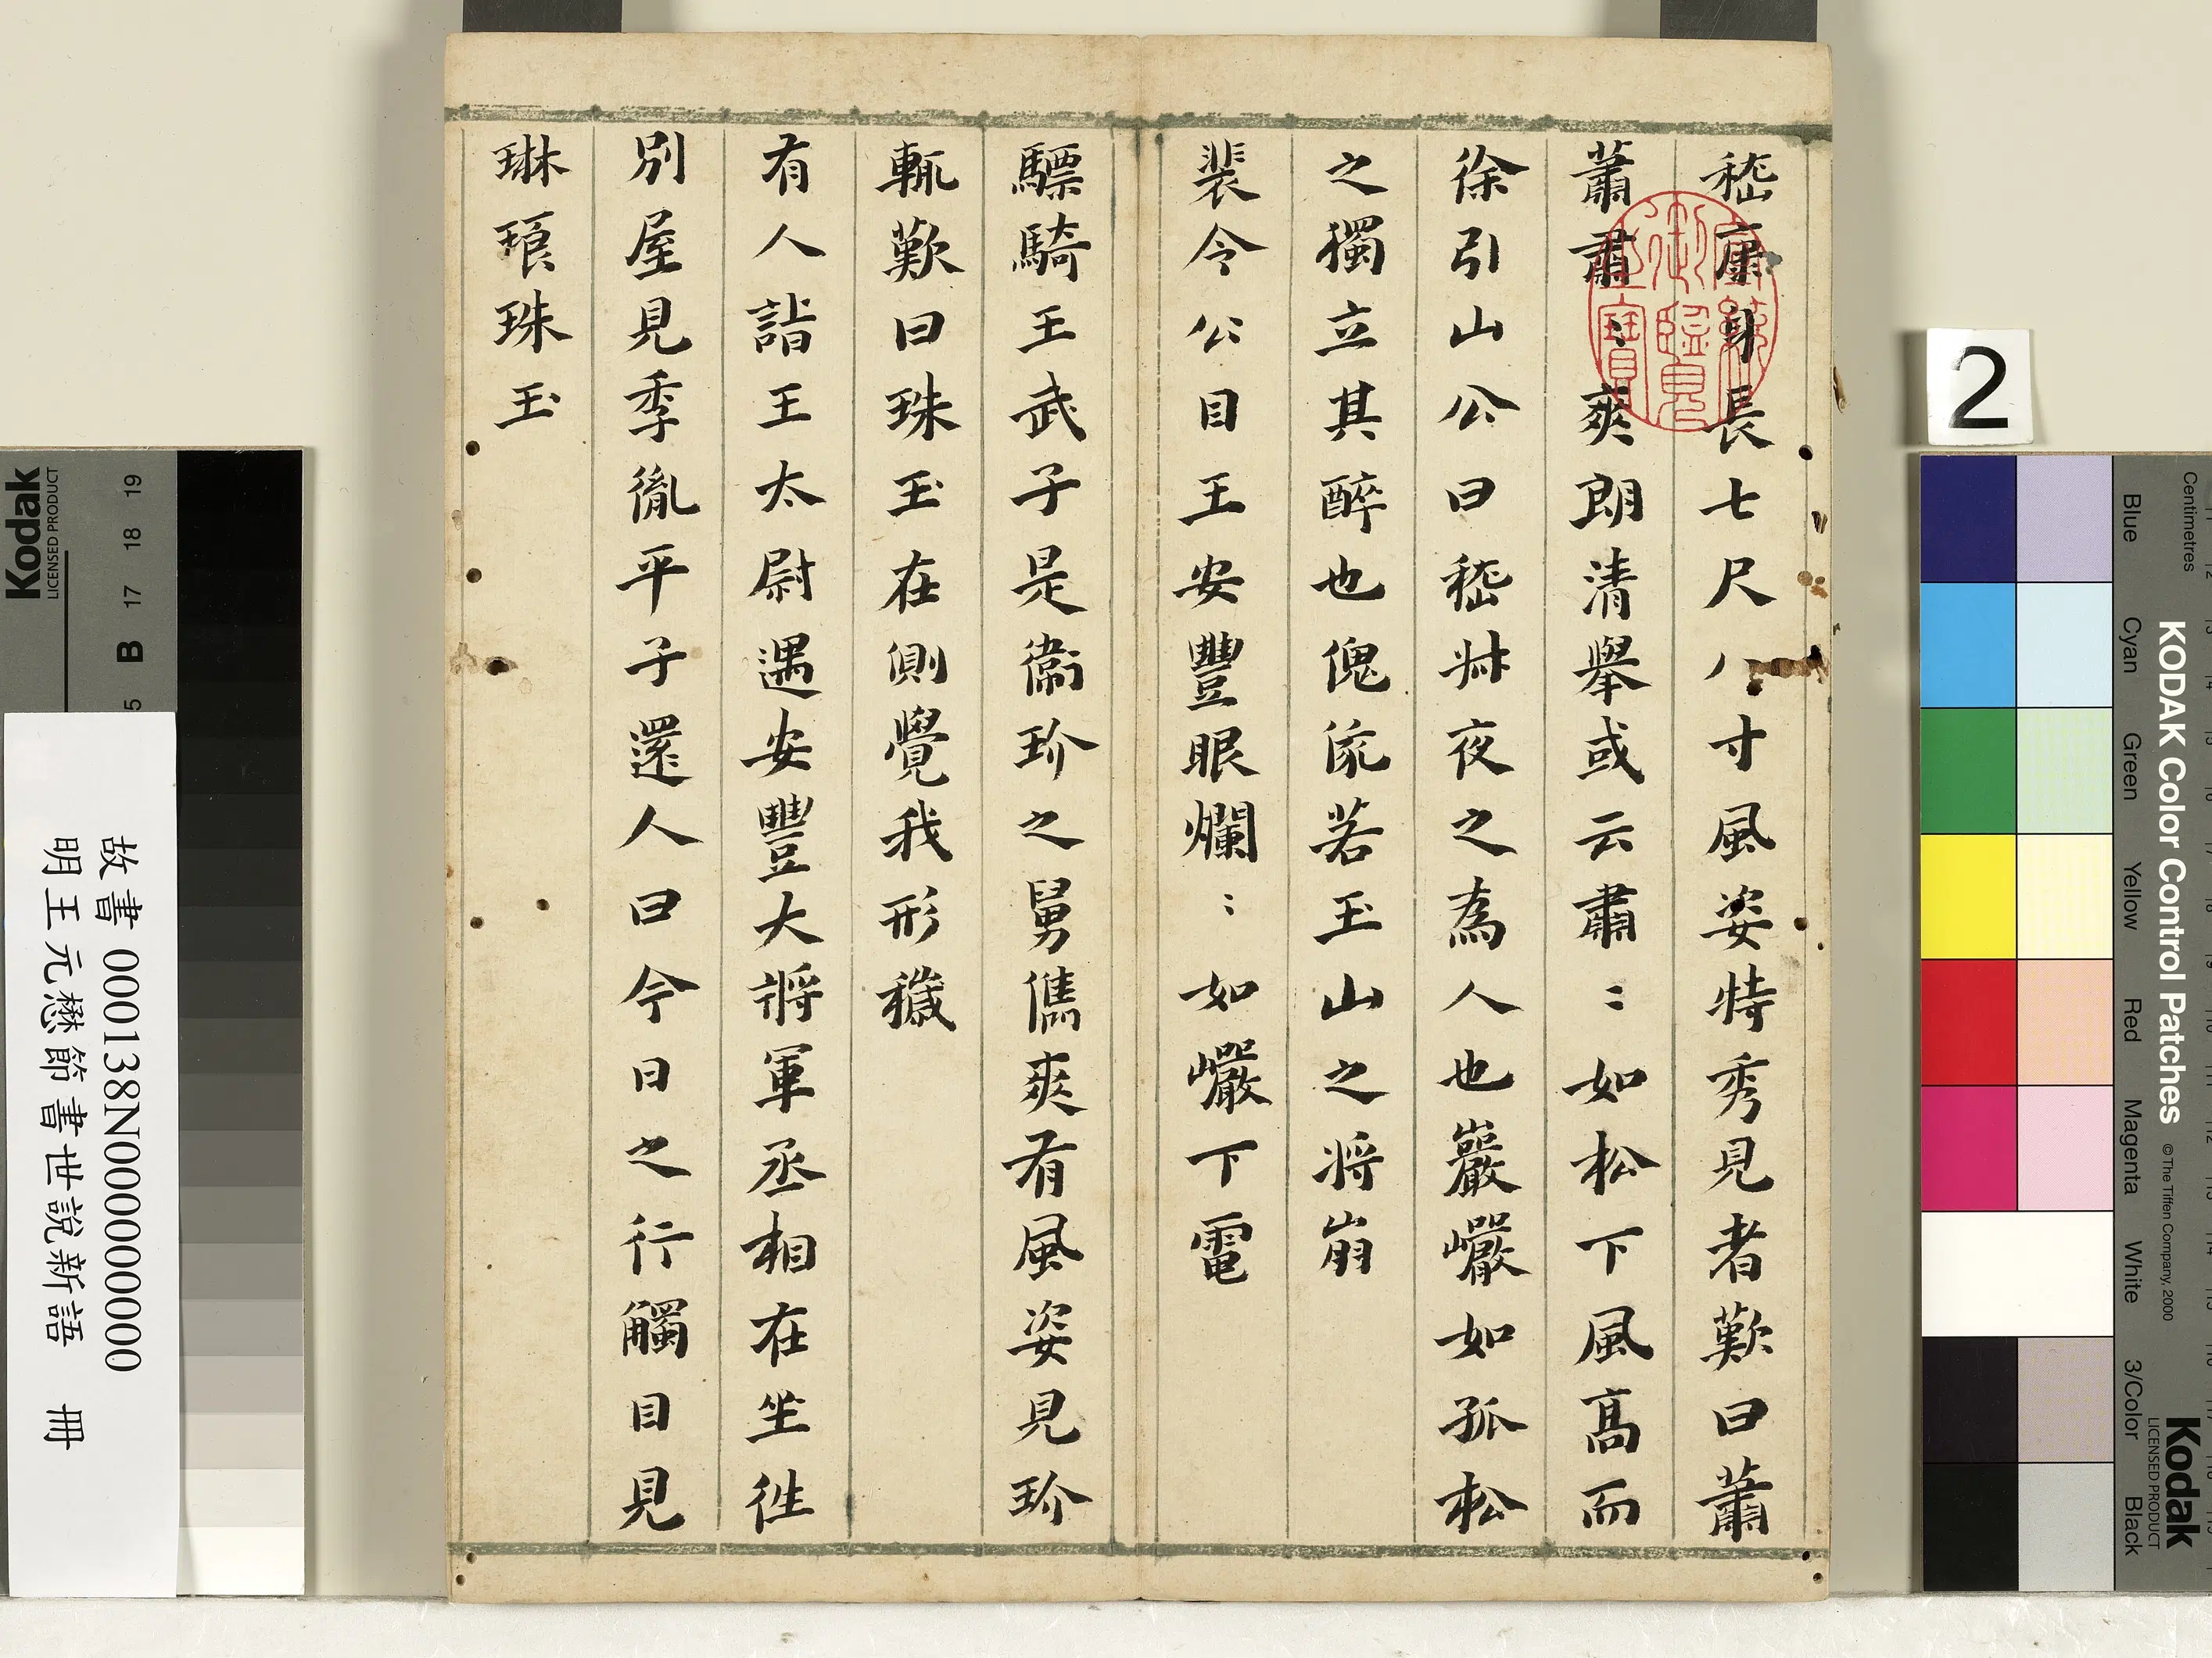 嵇康身長七尺八寸風姿特秀見者歎曰蕭
蕭肅〻爽朗清舉或云肅〻如松下風高而
徐引山公曰嵇叔夜之為人也巖巗如孤松
之獨立其醉也傀俄若玉山之将崩
裴令公目王安豐眼爛〻如巗下電
驃騎王武子是衛玠之舅儁爽有風姿見玠
輒歎曰珠玉在側覺我形穢
有人詣王太尉遇安豐大將軍丞相在坐往
別屋見季胤平子還人曰今日之行觸目見
琳琅珠玉
宣統
御覽
之寶
故書 000138N000000000
明王元懋節書世說新語 冊
2
Kodak
LICENSED PRODUCT
5 B 17 18 19
KODAK Color Control Patches
© The Tiffen Company, 2000
Kodak
LICENSED PRODUCT
Centimetres
Blue Cyan Green Yellow Red Magenta White 3/Color Black